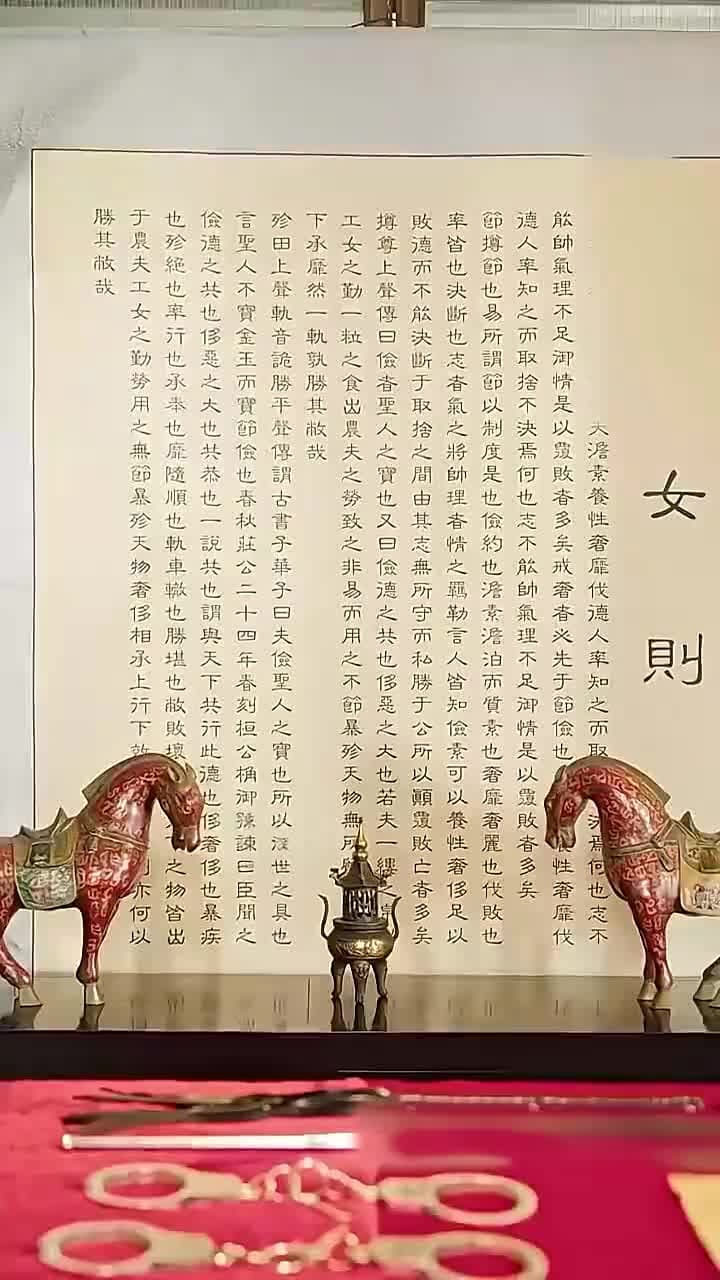 女則
夫澹素養性奢靡伐德人率知之而取決焉何也志不
能帥氣理不足御情是以覆敗者多矣戒奢者必先于節儉也養性奢靡伐
德人率知之而取捨不決焉何也志不能帥氣理不足御情是以覆敗者多矣
節撙節也易所謂節以制度是也儉約也澹素澹泊而質素也奢靡奢麗也伐敗也
率皆也決斷也志者氣之將帥理者情之羈勒言人皆知儉素可以養性奢侈足以
敗德而不能決斷于取捨之間由其志無所守而私勝于公所以顛覆敗亡者多矣
撙尊上聲傳曰儉者聖人之寶也又曰儉德之共也侈惡之大也若夫一縷之
工女之勤一粒之食出農夫之勞致之非易而用之不節暴殄天物無所
下承靡然一軌孰勝其敝哉
殄田上聲軌音詭勝平聲傳謂古書子華子曰夫儉聖人之寶也所以世之具也
言聖人不寶金玉而寶節儉也春秋莊公二十四年春刻桓公桷御孫諫曰臣聞之
儉德之共也侈惡之大也共恭也一說共也謂與天下共行此德也侈奢侈也暴疾
也殄絕也率行也承奉也靡隨順也軌車轍也勝堪也敝敗壞之物皆出
于農夫工女之勤勞用之無節暴殄天物奢侈相承上行下效亦何以
勝其敝哉